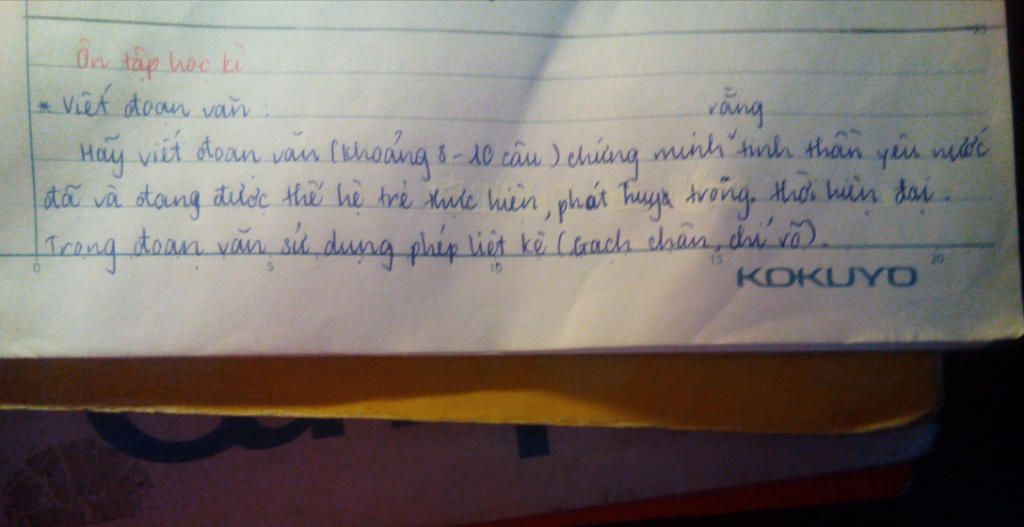 Ôn tập học kì
* Viết đoạn văn :
rằng
Hãy viết đoạn văn (khoảng 8-10 câu) chứng minh ˇ tinh thần yêu nước
đã và đang được thế hệ trẻ thực hiện, phát huy trong. thời hiện đại.
Trong đoạn văn sử dụng phép liệt kê (Gạch chân, chỉ rõ).
0 5 10 15 20
KOKUYO